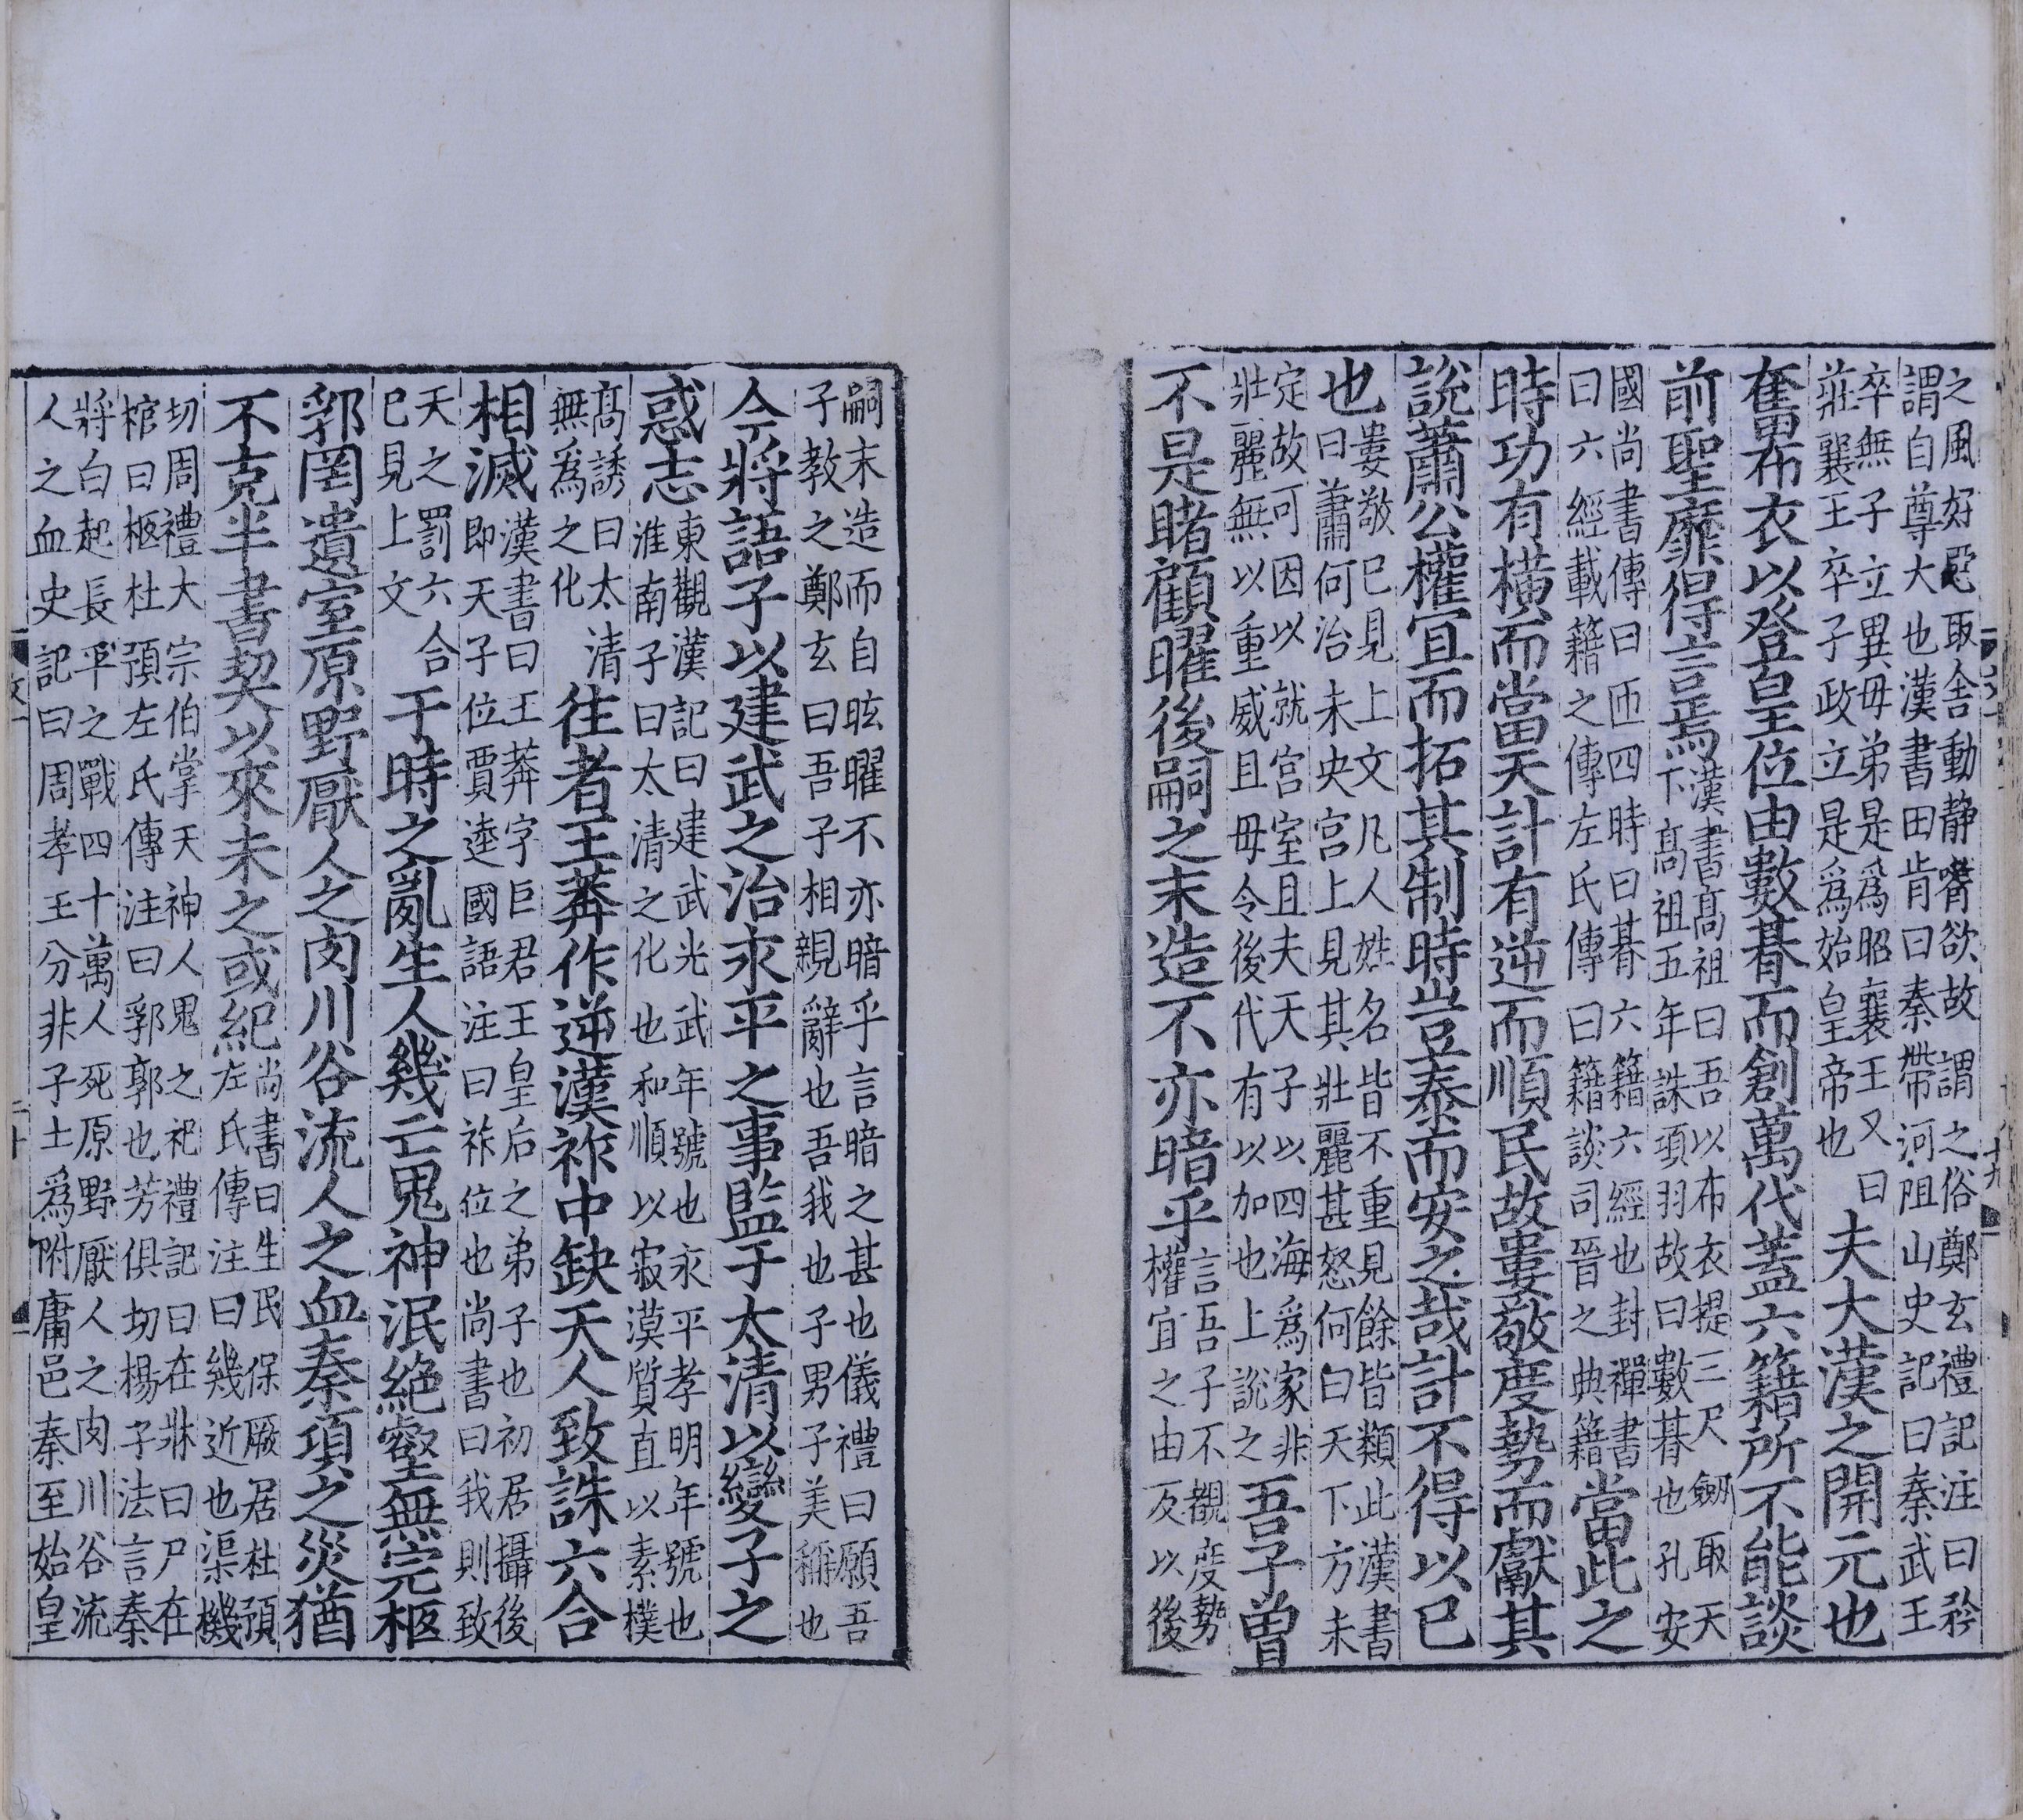 之風好惡取舎動静嗜欲故謂之俗鄭玄禮記注曰矜
謂自尊大也漢書田肯曰秦帶河阻山史記曰秦武王
卒無子立異母弟是爲昭襄王又曰
莊襄王卒子政立是爲始皇帝也
夫大漢之開元也
奮布衣以登皇位由數朞而創萬代蓋六籍所不能談
前聖靡得言焉
漢書髙祖曰吾以布衣提三尺劒取天
下髙祖五年誅項羽故曰數朞也孔安
國尚書傳曰匝四時曰朞六籍六經也封禪書
曰六經載籍之傳左氏傳曰籍談司晉之典籍
當此之
時功有橫而當天計有逆而順民故婁敬度勢而獻其
說蕭公權宜而拓其制時豈泰而安之哉計不得以已
也
婁敬已見上文凡人姓名皆不重見餘皆類此漢書
曰蕭何治未央宮上見其壯麗甚怒何曰天下方未
定故可因以就宫室且夫天子以四海爲家非
壯麗無以重威且毋令後代有以加也上說之
吾子曽
不是睹顧曜後嗣之末造不亦暗乎
言吾子不覩度勢
權宜之由反以後
嗣末造而自眩曜不亦暗乎言暗之甚也儀禮曰願吾
子教之鄭玄曰吾子相親辭也吾我也子男子美稱也
今將語子以建武之治永平之事監于太清以變子之
惑志
東觀漢記曰建武光武年號也永平孝明年號也
淮南子曰太清之化也和順以寂漠質直以素樸
髙誘曰太清
無爲之化
往者王莽作逆漢祚中缺天人致誅六合
相滅
漢書曰王莽字巨君王皇后之弟子也初居攝後
即天子位賈逵國語注曰祚位也尚書曰我則致
天之罰六合
已見上文
于時之亂生人幾亡鬼神泯絶壑無完柩
郛罔遺室原野厭人之肉川谷流人之血秦項之災猶
不克半書契以來未之或紀
尚書曰生民保厥居杜預
左氏傳注曰幾近也渠機
切周禮大宗伯掌天神人鬼之祀禮記曰在牀曰尸在
棺曰柩杜預左氏傳注曰郛郭也芳俱切楊子法言秦
將白起長平之戰四十萬人死原野厭人之肉川谷流
人之血史記曰周孝王分非子土爲附庸邑秦至始皇